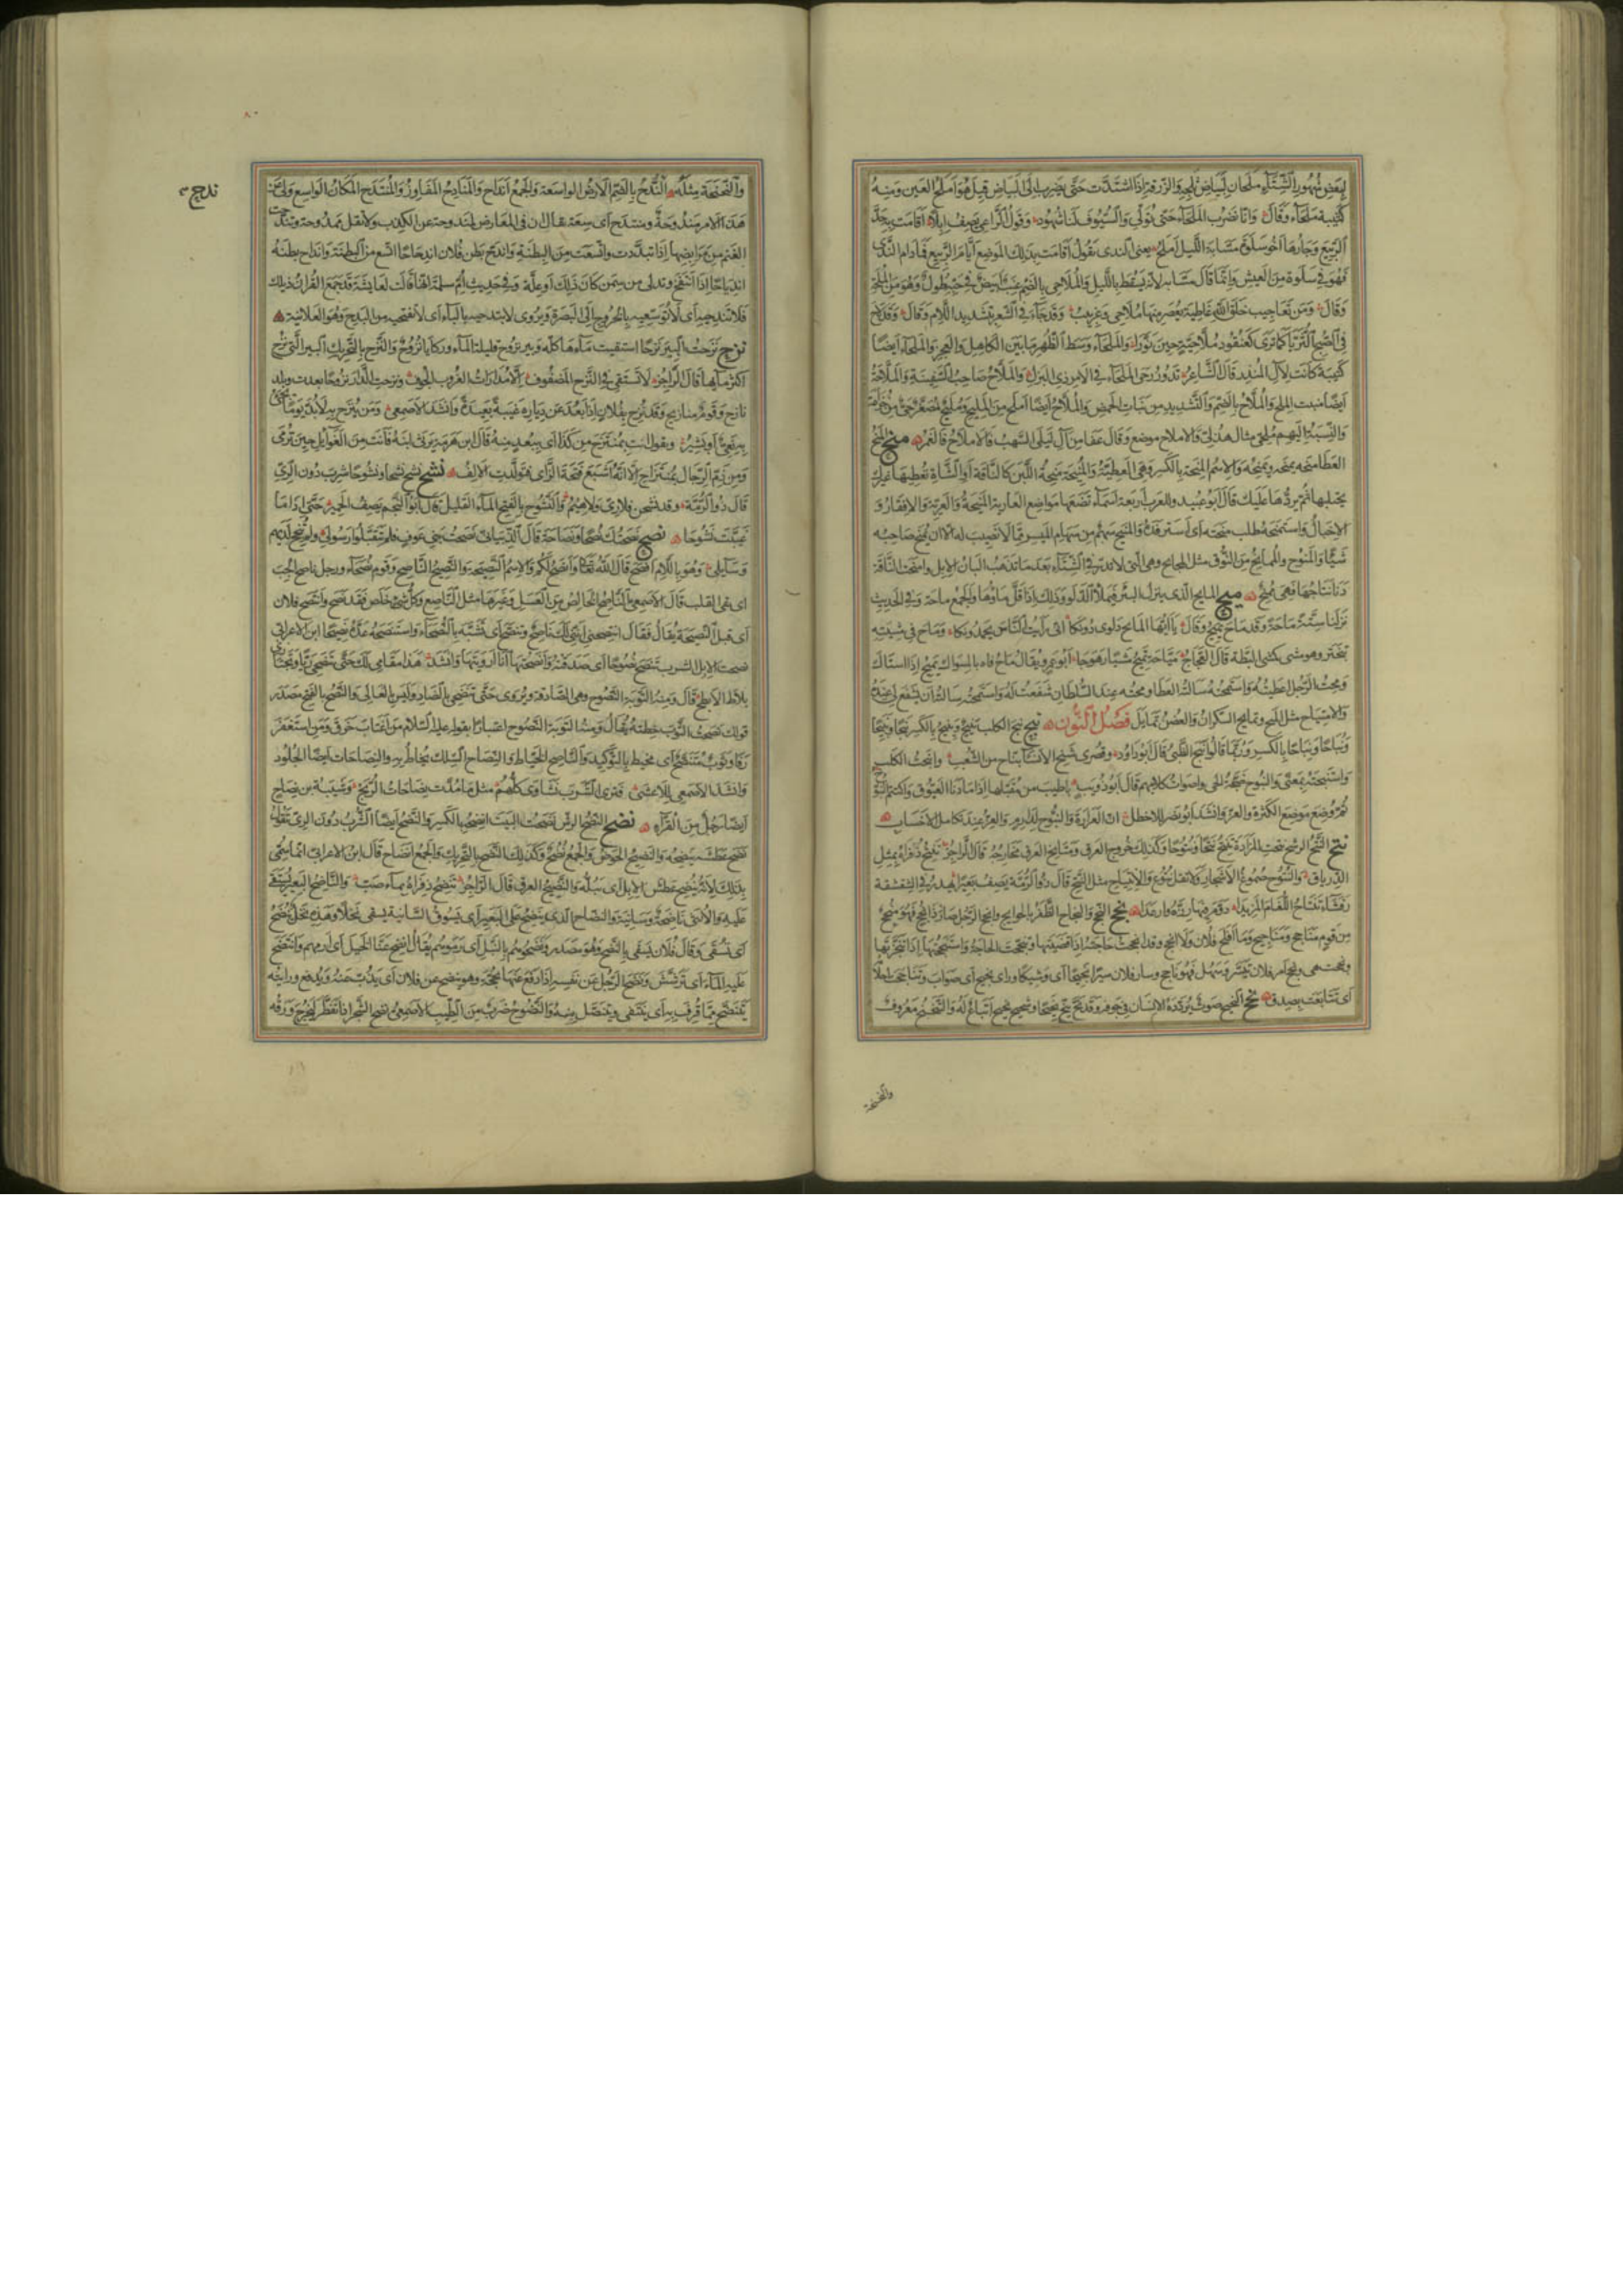 لبعض شهور الشتاء ملحان لبياض ثلجه والزرقة اذا اشتدت حتى يضرب الى البياض قيل هو املح العين ومنه
كتيبة ملحاء وقال وانا نضرب الملحاء حتى تولى والسيوف لنا شهود وقول الراعى يصف ابلا اقامت به حد
الربيع وجارها اخو سلوة مسّا به الليل املح يعنى الندى يقول اقامت بذلك الموضع ايام الربيع فما دام الندى
فهو فى سلوة من العيش وانما قال مسّا به لانه يسقط بالليل والملاحى بالضم عنب ابيض فى حبه طول وهو من الملحة
وقال ومن تعاجيب خلق الله غاطية يعصر منها ملاحى وغربيب وقد جاء فى الشعر بتشديد اللام وقال وقد لاح
فى الصبح الثريا كما ترى كعنقود ملاحية حين نورا والملحاء وسط الظهر ما بين الكاهل والعجز والملحاء ايضا
كتيبة كانت لآل المنذر قال الشاعر تدور رحى الملحاء فى الامر ذى البزل والملاح صاحب السفينة والملاحة
ايضا منبت الملح والملاح بالضم والتشديد من نبات الحمض والملاح ايضا املح من المليح ومليح مصغر حى من خزاعة
والنسبة اليهم ملحى مثال هذلى والاملاح موضع وقال عفا من آل ليلى السهب فالاملاح فالغمر منح المنح
العطا منحه يمنحه ويمنحه والاسم المنحة بالكسر وهى العطية والمنيحة منحة اللبن كالناقة او الشاة تعطيها غيرك
يحتلبها ثم يردها عليك قال ابو عبيد وللعرب اربعة اسماء تضعها مواضع العارية المنيحة والعرية والافقار و
الاخبال واستمنحه طلب منحته اى استرفده والمنيح سهم من سهام الميسر مما لا نصيب له الا ان يمنح صاحبه
شيئا والمنوح والممانح من النوق مثل المجالح وهى التى لا تدر فى الشتاء بعد ما تذهب البان الابل وامنحت الناقة
دنا نتاجها فهى ممنح ميح المايح الذى ينزل البئر فيملأ الدلو وذلك اذا قل ماؤها والجمع ماحة وفى الحديث
نزلنا ستة ماحة وقد ماح يميح وقال يا ايها المايح دلوى دونكا انى رايت الناس يحمدونكا وماح فى مشيته
تبختر وهو مشى كمشى البطة قال العجاج مياحة تميح مشيا رهوجا ابو عمرو يقال ماح فاه بالسواك يميح اذا استاك
ومحت الرجل اعطيته واستمحته سالته العطا ومحته عند السلطان شفعت له واستمحته سالته ان يشفع لى عنده
والامتياح مثل الميح وتمايح السكران والغصن تمايل فصل النون نبح نبح الكلب ينبح وينبح بالكسر نبحا ونبيحا
ونباحا ونباحا بالكسر وربما قالوا نبح الظبى قال ابو دواد وقصرى شنج الانساء نباح من الشعب وانبحت الكلب
واستنبحته بمعنى والنبوح ضجة الحى واصوات كلابهم قال ابو ذؤيب باطيب من مقبلها اذا ما دنا العيوق واكتتم النبوح
ثم وضع موضع الكثرة والعز وانشد ابو نصر للاخطل ان العرارة والنبوح لدارم والعز عند تكامل الاحساب
نتح النتح الرشح نتحت المزادة تنتح نتحا ونتوحا وكذلك خروج العرق ومناتح العرق مخارجه قال الراجز تنتح ذفراه بمثل
الدرياق والنتوح صموغ الاشجار ولا تقل نتوع والانتياح مثل النتح قال ذو الرمة يصف بعيرا يهدر فى الشقشقة
رقشاء تنتاح اللغام المزبدا دوم فيها رزه وارعدا نجح النجح والنجاح الظفر بالحوايج وانجح الرجل صار ذا نجح فهو منجح
من قوم مناجح ومناجيح وما افلح فلان ولا انجح وقد انجحت حاجته اذا قضيتها ونجحت الحاجة واستنجحتها اذا تنجزتها
ونجحت هى ونجح امر فلان تيسر وسهل فهو ناجح وسار فلان سيرا نجيحا اى وشيكا وراى نجيح اى صواب وتناجحت احلامه
اى تتابعت بصدق نحح النحيح صوت يردده الانسان فى جوفه وقد نح ينح نحيحا وشحيح نحيح اتباع له والتنحنح معروف
والنحنحة
والنحنحة مثله الندح بالضم الارض الواسعة والجمع انداح والمنادح المفاوز والمنتدح المكان الواسع ولى عن
هذا الامر مندوحة ومنتدح اى سعة يقال ان فى المعاريض لمندوحة عن الكذب ولا تقل ممدوحة وتندحت
الغنم من مرابضها اذا تبددت واتسعت من البطنة واندح بطن فلان اندحاحا اتسع من البطنة وانداح بطنه
اندياحا اذا انتفخ وتدلى من سمن كان ذلك او علة وفى حديث ام سلمة انها قالت لعايشة قد جمع القران ذيلك
فلا تندحيه اى لا توسعيه بالخروج الى البصرة ويروى لا تبدحيه بالباء اى لا تفتحيه من البدح وهو العلانية
نزح نزحت البير نزحا استقيت ماءها كله وبير نزوح قليلة الماء وركايا نزح والنزح بالتحريك البير التى نزح
اكثر مائها قال الراجز لا تستقى فى النزح المضفوف الا مدارات الغروب الجوف ونزحت الدار نزوحا بعدت وبلد
نازح وقوم منازيح وقد نزح بفلان اذا بعد عن دياره غيبة بعيدة وانشد الاصمعى ومن ينزح به لا بد يوما يجئ
به نعى او بشير وتقول انت بمنتزح من كذا اى ببعد منه قال ابن هرمة يرثى ابنه فانت من الغوايل حين ترمى
ومن ذم الرجال بمنتزاح الا انه اشبع فتحة الزاى فتولدت الالف نشح نشح نشحا ونشوحا شرب دون الرى
قال ذو الرمة وقد نشحن فلا رى ولا هيم والنشوح بالفتح الماء القليل قال ابو النجم يصف الحمير حتى اذا ما
غيبت نشوحا نصح نصحتك نصحا ونصاحة قال الذبيانى نصحت بنى عوف فلم يتقبلوا رسولى ولم تنجح لديهم
وسايلى وهو باللام افصح قال الله تعالى وانصح لكم والاسم النصيحة والنصيح الناصح وقوم نصحاء ورجل ناصح الجيب
اى نقى القلب قال الاصمعى الناصح الخالص من العسل وغيرها مثل الناصع وكل شئ خلص فقد نصح وانتصح فلان
اى قبل النصيحة يقال انتصحنى اننى لك ناصح وتنصح اى تشبه بالنصحاء واستنصحه عده نصيحا ابن الاعرابى
نصحت الابل الشرب تنصح نصوحا اى صدقته وانصحتها انا ارويتها وانشد هذا مقامى لك حتى تنصحى ريا وتجتازى
بلاط الابطح قال ومنه التوبة النصوح وهى الصادقة ويروى حتى تنضحى بالضاد وليس بالعالى والنصح بالفتح مصدر
قولك نصحت الثوب خطته يقال ومنه التوبة النصوح اعتبارا بقوله عليه السلام من اغتاب خرق ومن استغفر
رفا وثوب متنصح اى مخيط بالتوكيد والناصح الخياط والنصاح السلك يخاط به والنصاحات ايضا الجلود
وانشد الاصمعى للاعشى فترى الشرب نشاوى كلهم مثل ما مدت نصاحات الربح وشيبة بن نصاح
ايضا رجل من القراء نضح النضح الرش نضحت البيت انضحه بالكسر والنضح ايضا الشرب دون الرى تقول
نضح عطشه ينضحه والنضيح الحوض والجمع نضح وكذلك النضح بالتحريك والجمع انضاح قال ابن الاعرابى انما سمى
بذلك لانه ينضح عطش الابل اى يبله والنضيح العرق قال الراجز تنضح ذفراه بماء صب والناضح البعير يستقى
عليه والانثى ناضحة وسانية والنضاح الذى ينضح على البعير اى يسوق السانية يسقى نخلا وهذه نخل تنضح
اى تسقى وقال فلان يسقى بالنضح وهو مصدر ونضحوهم بالنبل اى رموهم يقال انضح عنا الخيل اى ارمهم وانتضح
عليه الماء اى ترشش ونضح الرجل عن نفسه اذا دفع عنها بحجة وهو ينضح عن فلان اى يذب عنه ويدفع ورايته
يتنضح مما قرف به اى ينتفى ويتنصل منه والنضوح ضرب من الطيب الاصمعى نضح الشجر اذا تفطر ليخرج ورقه
ندح